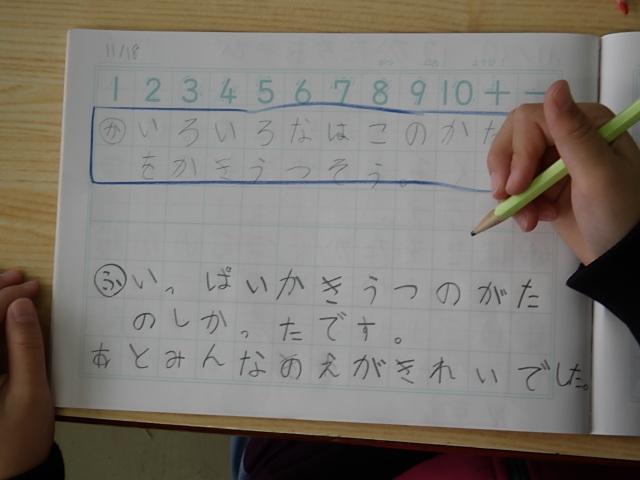 11/18
1 2 3 4 5 6 7 8 9 10 + -
か いろいろなはこのかた
をかきうつそう。
ふ いっぱいかきうつのがた
のしかったです。
あとみんなのえがきれいでした。